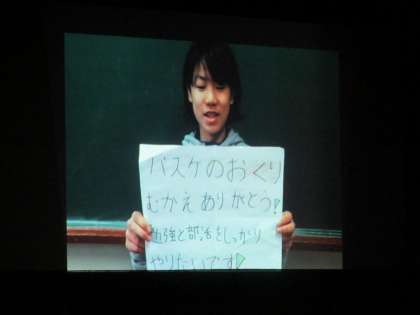 バスケのおくり
むかえありがとう!
勉強と部活をしっかり
やりたいです!